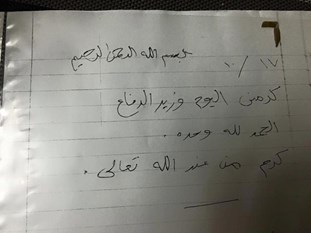 ٦
بسم الله الرحمن الرحيم
١٧ / ١٠
كرمني اليوم وزير الدفاع
الحمد لله وحده.
كرم من عند الله تعالى.